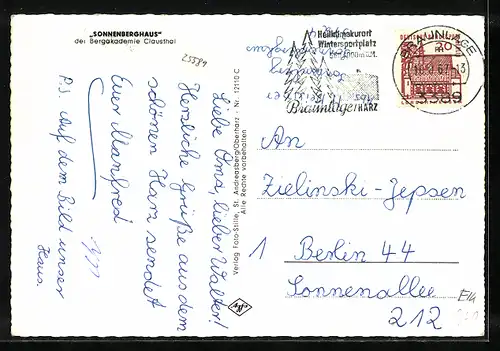 „SONNENBERGHAUS"
der Bergakademie Clausthal
25589
Heilklimakurort
Wintersportplatz
Braunlage HARZ
BRAUNLAGE
3389
Verlag Foto-Stille, St. Andreasberg/Oberharz · Nr. 12110 C
Alle Rechte vorbehalten
Liebe Oma, lieber Walter!
Herzliche Grüße aus dem
schönen Harz sendet
Euer Manfred
P.S. Auf dem Bild unser
Haus.
An
Zielinski-Jepsen
1 Berlin 44
Sonnenallee
212